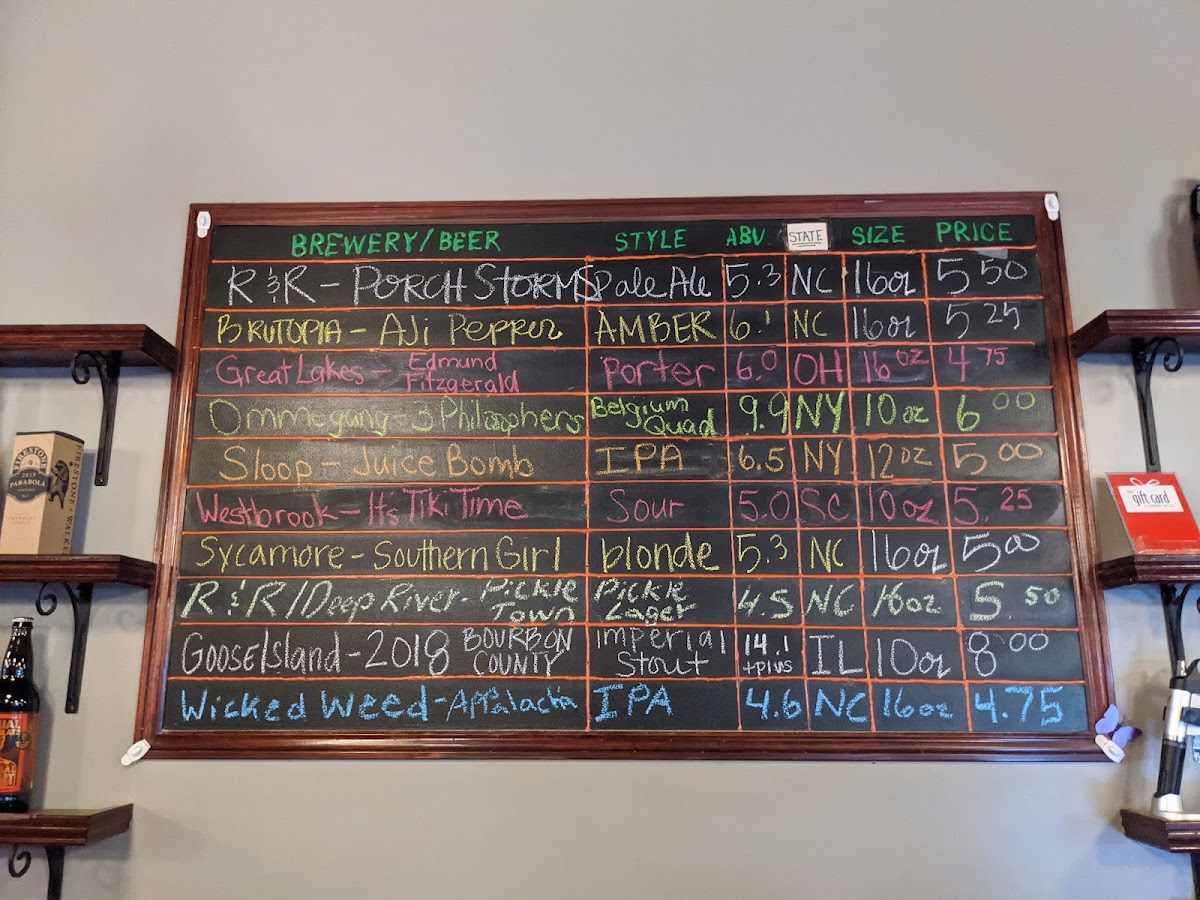 BREWERY/BEER STYLE ABV. STATE SIZE PRICE
R&R - PORCH STORMS Pale Ale 5.3 NC 16oz 5 50
BRUTOPIA - AJi Pepper AMBER 6.1 NC 16oz 5 25
Great Lakes - Edmund Fitzgerald Porter 6.0 OH 16oz 4.75
Ommegang - 3 Philosophers Belgium Quad 9.9 NY 10oz 6 00
Sloop - Juice Bomb IPA 6.5 NY 12oz 5 00
Westbrook - It's Tiki Time Sour 5.0 SC 10oz 5.25
Sycamore - Southern Girl blonde 5.3 NC 16oz 5 00
R & R/Deep River - Pickle Town Pickle Lager 4.5 NC 16oz 5 50
Goose Island - 2018 BOURBON COUNTY imperial Stout 14.1 +plus IL 10oz 8.00
Wicked Weed - Appalachia IPA 4.6 NC 16oz 4.75
FIRESTONE
PARABOLA
FIRESTONE WALKER
gift card